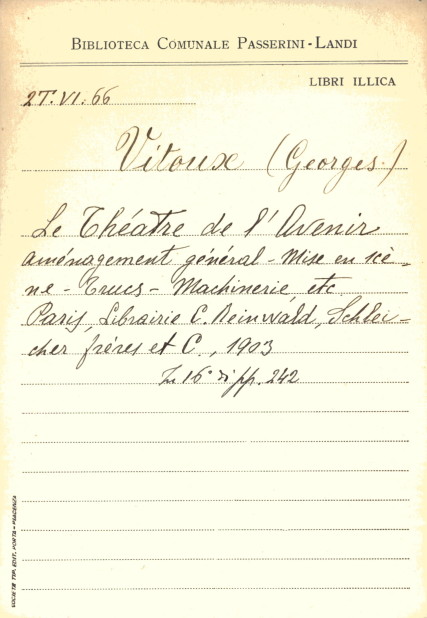 BIBLIOTECA COMUNALE PASSERINI-LANDI
LIBRI ILLICA
2T.VI.66
Vitoux (Georges.)
Le Théatre de l'Avenir
aménagement général - Mise en scè-
ne - Trucs - Machinerie, etc
Paris, Librairie C. Reinwald, Schlei-
cher fréres et C., 1903
In 16° di pp. 242
SOCIETÀ TIP. EDIT. PORTA - PIACENZA